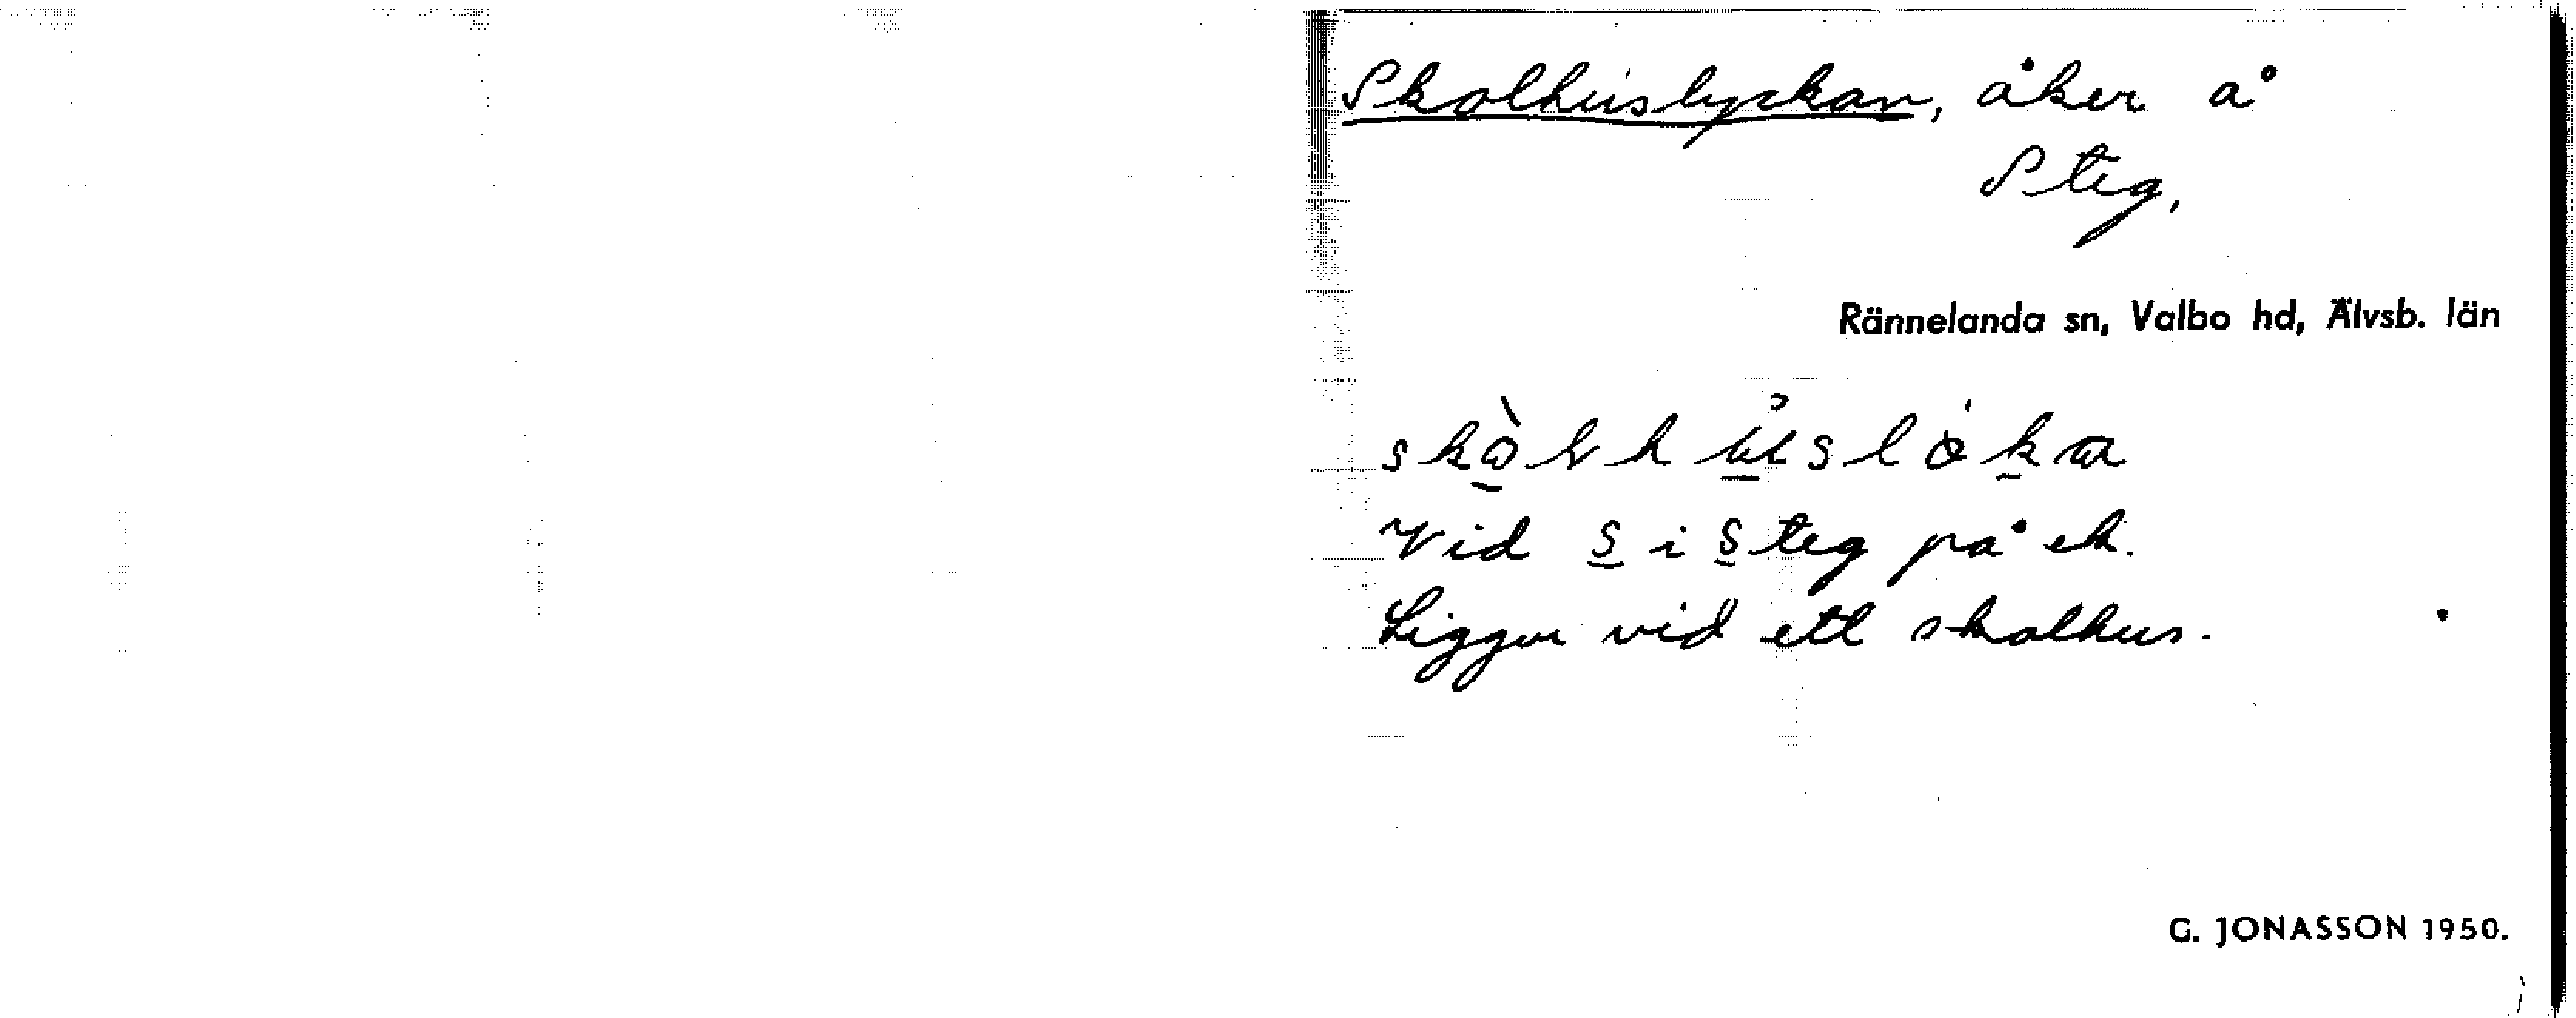 Skolhuslyckan, åker å
Steg,
Rännelanda sn, Valbo hd, Älvsb. län
Vid S i Steg på ek.
Ligger vid ett skolhus.
G. JONASSON 1950.